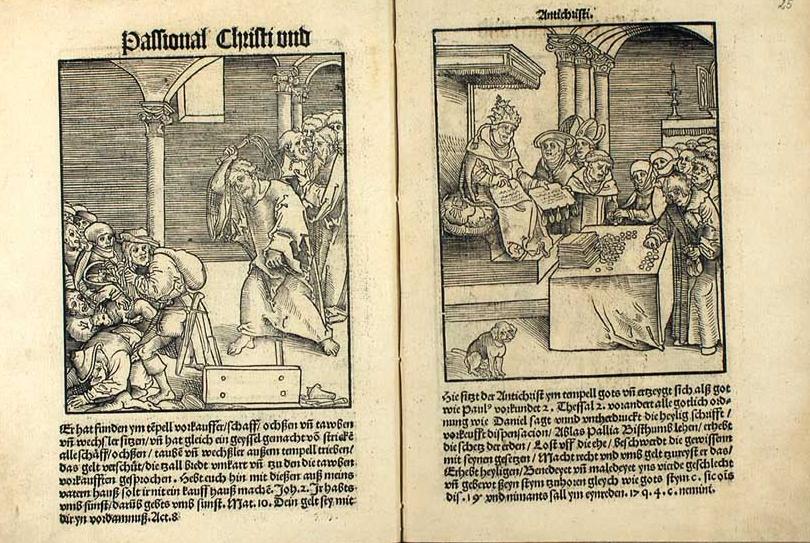 Passional Christi und
Er hat funden ym tēpell vorkauffer/schaff/ ochßen vñ tawben
vñ wechßler sitzen/vñ hat gleich ein geyssel gemacht vō stricke
alle schäff/ochßen/ taubē vñ wechßler außem tempell trieben/
das gelt verschüt/die zall
vorkaufften gesprochen. Hebt euch hin mit dießen auß meins
vatern hauß solt ir nit ein kauff hauß machē. Joh. 2. Ir habts
vmb sunst/darüb gebts vmb sunst. Mat. 10. Dein gelt sey mit
dir yn vordamnuß. Act. 8
25
Antichristi.
Hie sitzt der Antichrist ym tempell gots vñ ertzeygt sich alß got
wie Paul9 vorkundet 2. Thessal 2. vorandert alle gotlich ord-
nung wie Daniel sagt vnnd vntherdruckt die heylig schrifft/
vorkeufft dispensacion/ Ablas Pallia Bisthumb lehen/ erhebt
die schetz der erden/ Lost vff die ehe/ Beschwerdt die gewissenn
mit seynen gesetzen/ Macht recht vnd vmb gelt zureyst er das/
Erhebt heyligen/ Benedeyet vñ maledeyet yns vierde geschlecht
vñ gebewt ßeyn stym tzuhoren gleych wie gots stym c. sic ois
dis. 19 vnd nimants sall ym eynreden. 17 q. 4. c. nemini.